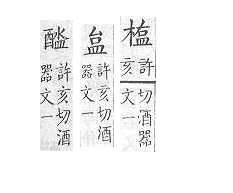 許亥切酒器文一
許亥切酒
器文一
許亥切酒
器文一